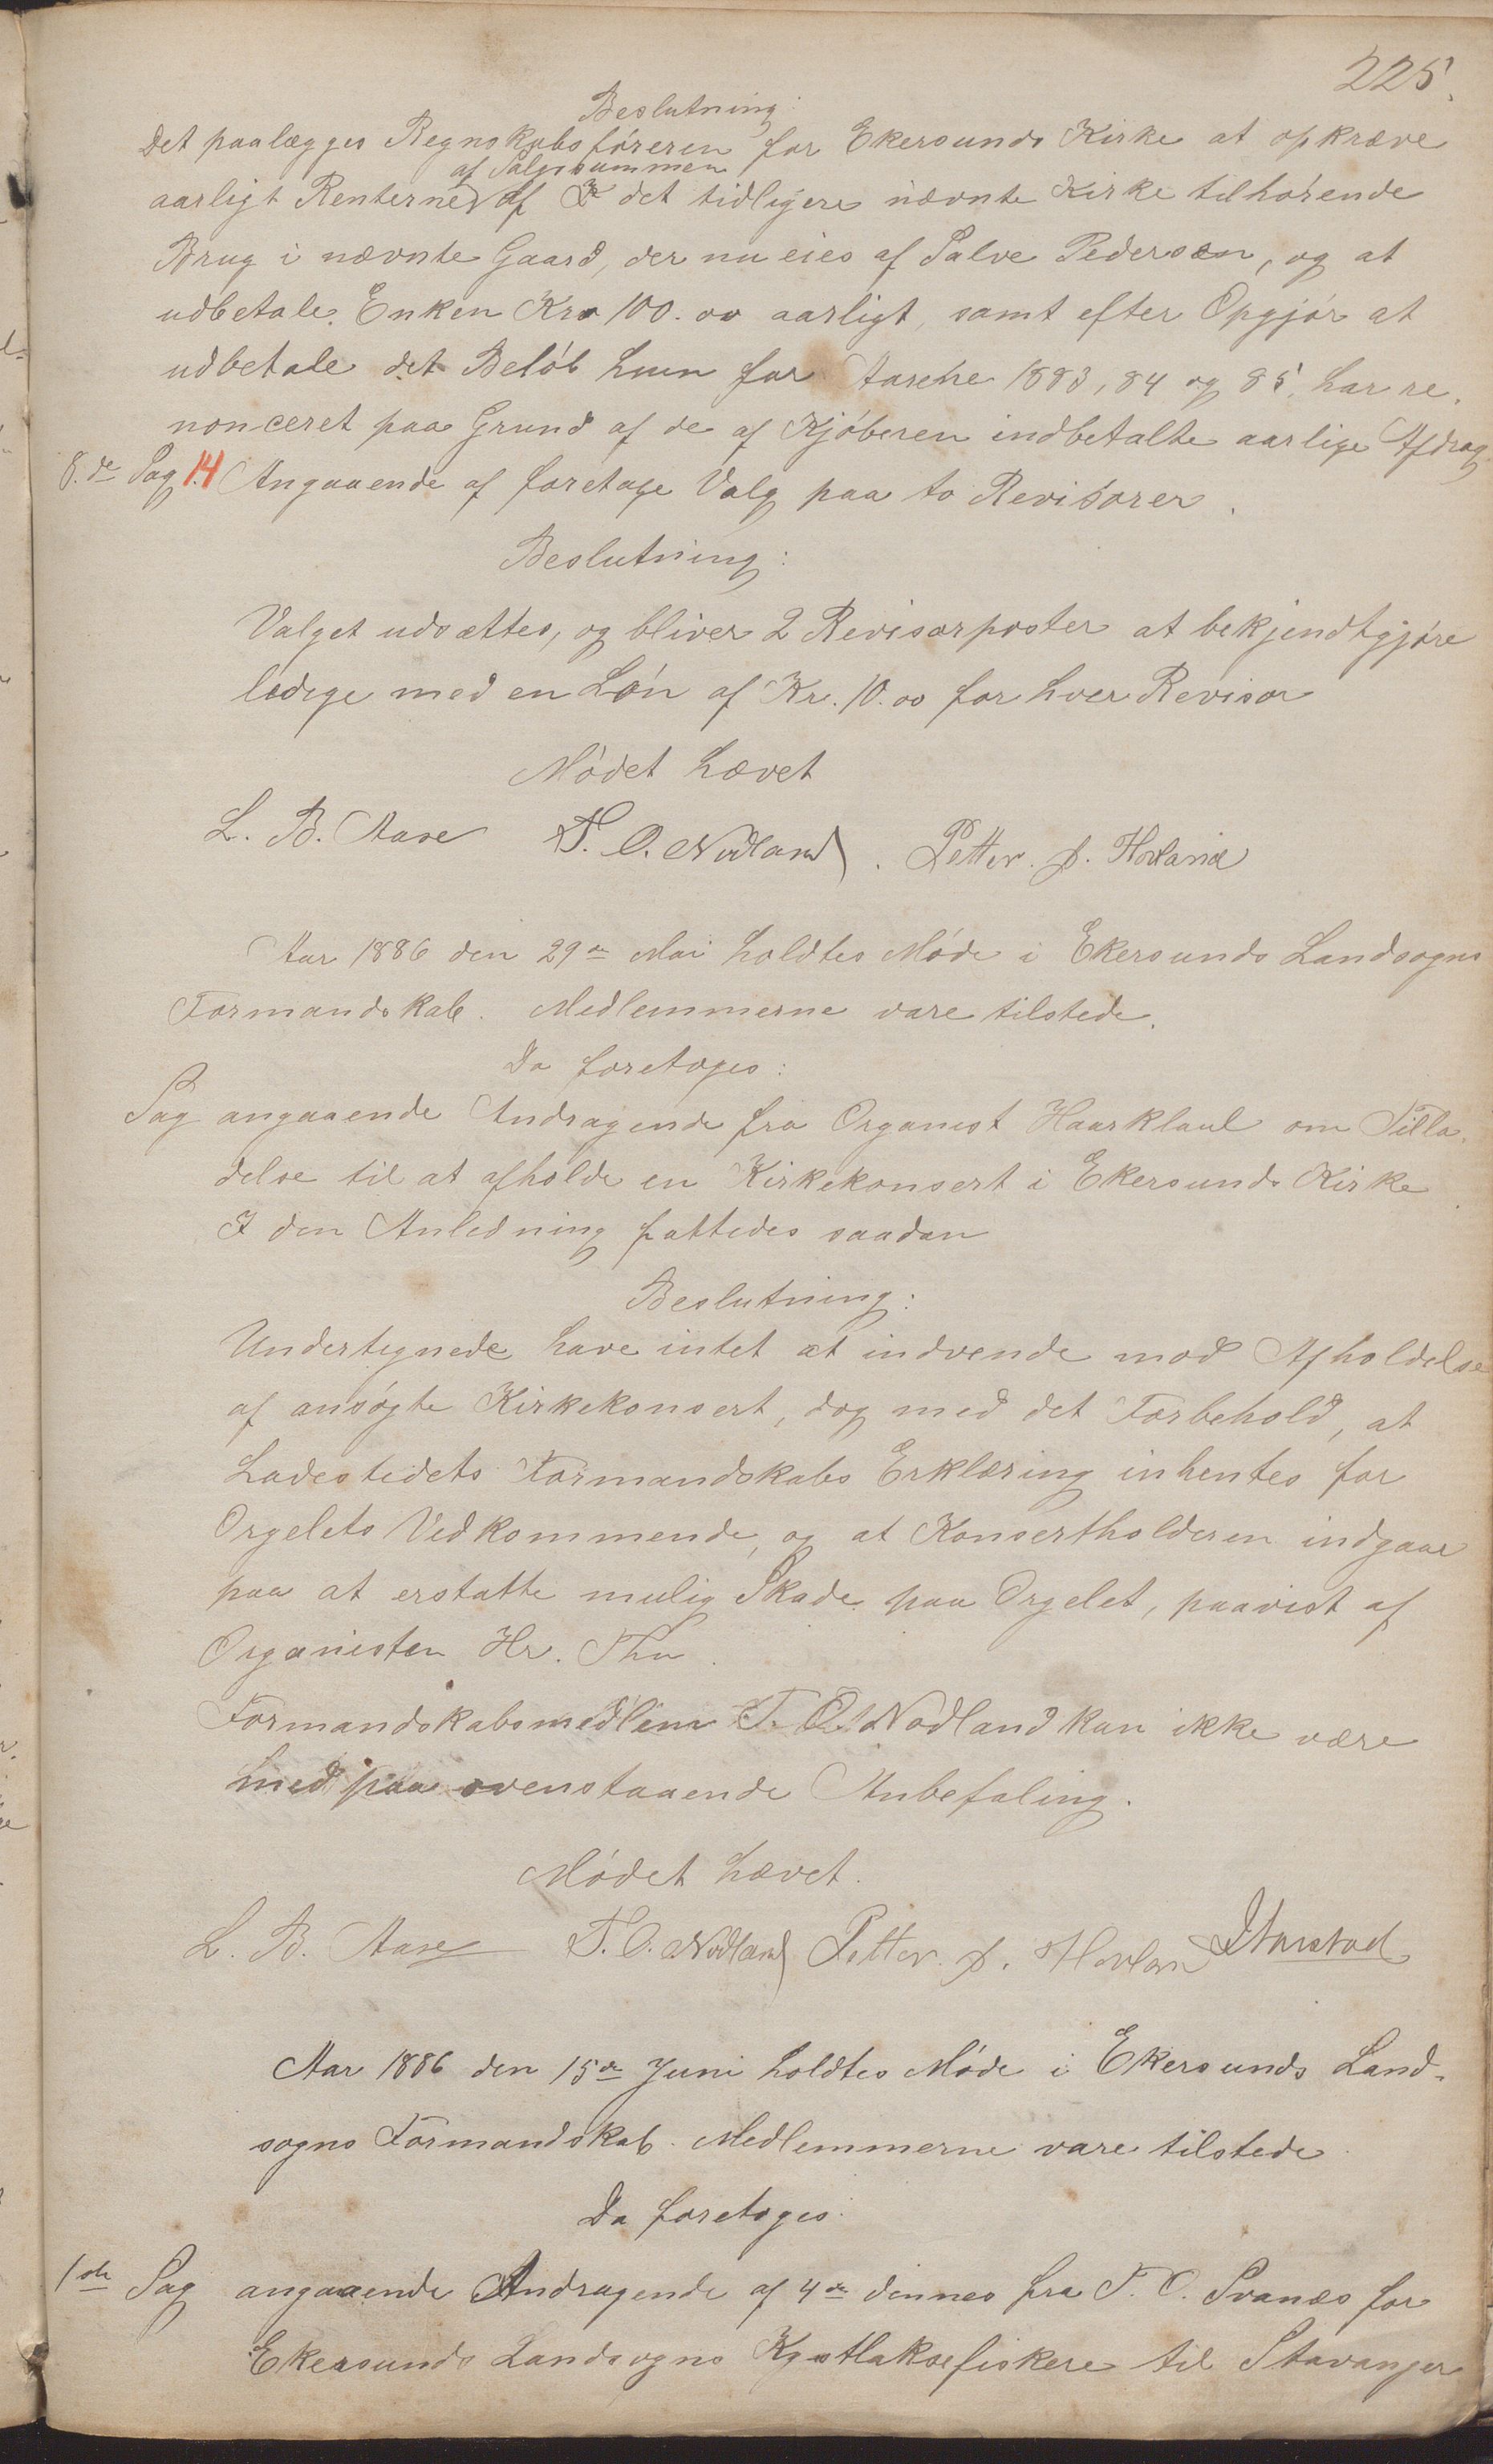 225.
Beslutning:
Det paalægges Regnskabsføreren for Ekersunds Kirke at opkræve
af Salgssummen
aarligt Renterne af det tidligere nævnte Kirke tilhørende
Brug i nævnte Gaard, der nu eies af Salve Pedersen, og at
udbetale Enken Kr 100.00 aarligt, samt efter Opgjør at
udbetale det Beløb hun for Aarene 1883, 84 og 85, har re-
nonceret paa Grund af de af Kjøberen indbetalte aarlige Afdrag.
8.de Sag 14 Angaaende af foretage Valg paa to Revisorer.
Beslutning:
Valget udsættes, og bliver 2 Revisorposter at bekjendtgjøre
ledige med en Løn af Kr. 10.00 for hver Revisor
Mødet hævet
L. B. Aase T. O. Nodland. Petter. P. Hovland
Aar 1886 den 29de Mai holdtes Møde i Ekersunds Landsogns
Formandskab. Medlemmerne vare tilstede.
Da foretoges:
Sag angaaende Andragende fra Organist Haarklaul om Tilla-
delse til at afholde en Kirkekonsert i Ekersunds Kirke
I den Anledning fattedes saadan
Beslutning:
Undertegnede have intet at indvende mod Afholdelse
af ansøgte Kirkekonsert, dog med det Forbehold, at
Ladestedets Formandskabs Erklæring inhentes for
Orgelets Vedkommende, og at Konsertholderen indgaar
paa at erstatte mulig Skade paa Orgelet, paavist af
Organisten Hr. Thu.
Formandskabsmedlem T. O. Nodland kan ikke være
med paa ovenstaaende Anbefaling.
Mødet hævet.
L. B. Aase T. O. Nodland Petter. P. Hovland
Aar 1886 den 15de Juni holdtes Møde i Ekersunds Land-
sogns Formandskab. Medlemmerne vare tilstede
Da foretoges:
1ste Sag angaaende Andragende af 4de dennes fra T. O. Svanæs for
Ekersunds Landsogns Kystlaksefiskere til Stavanger